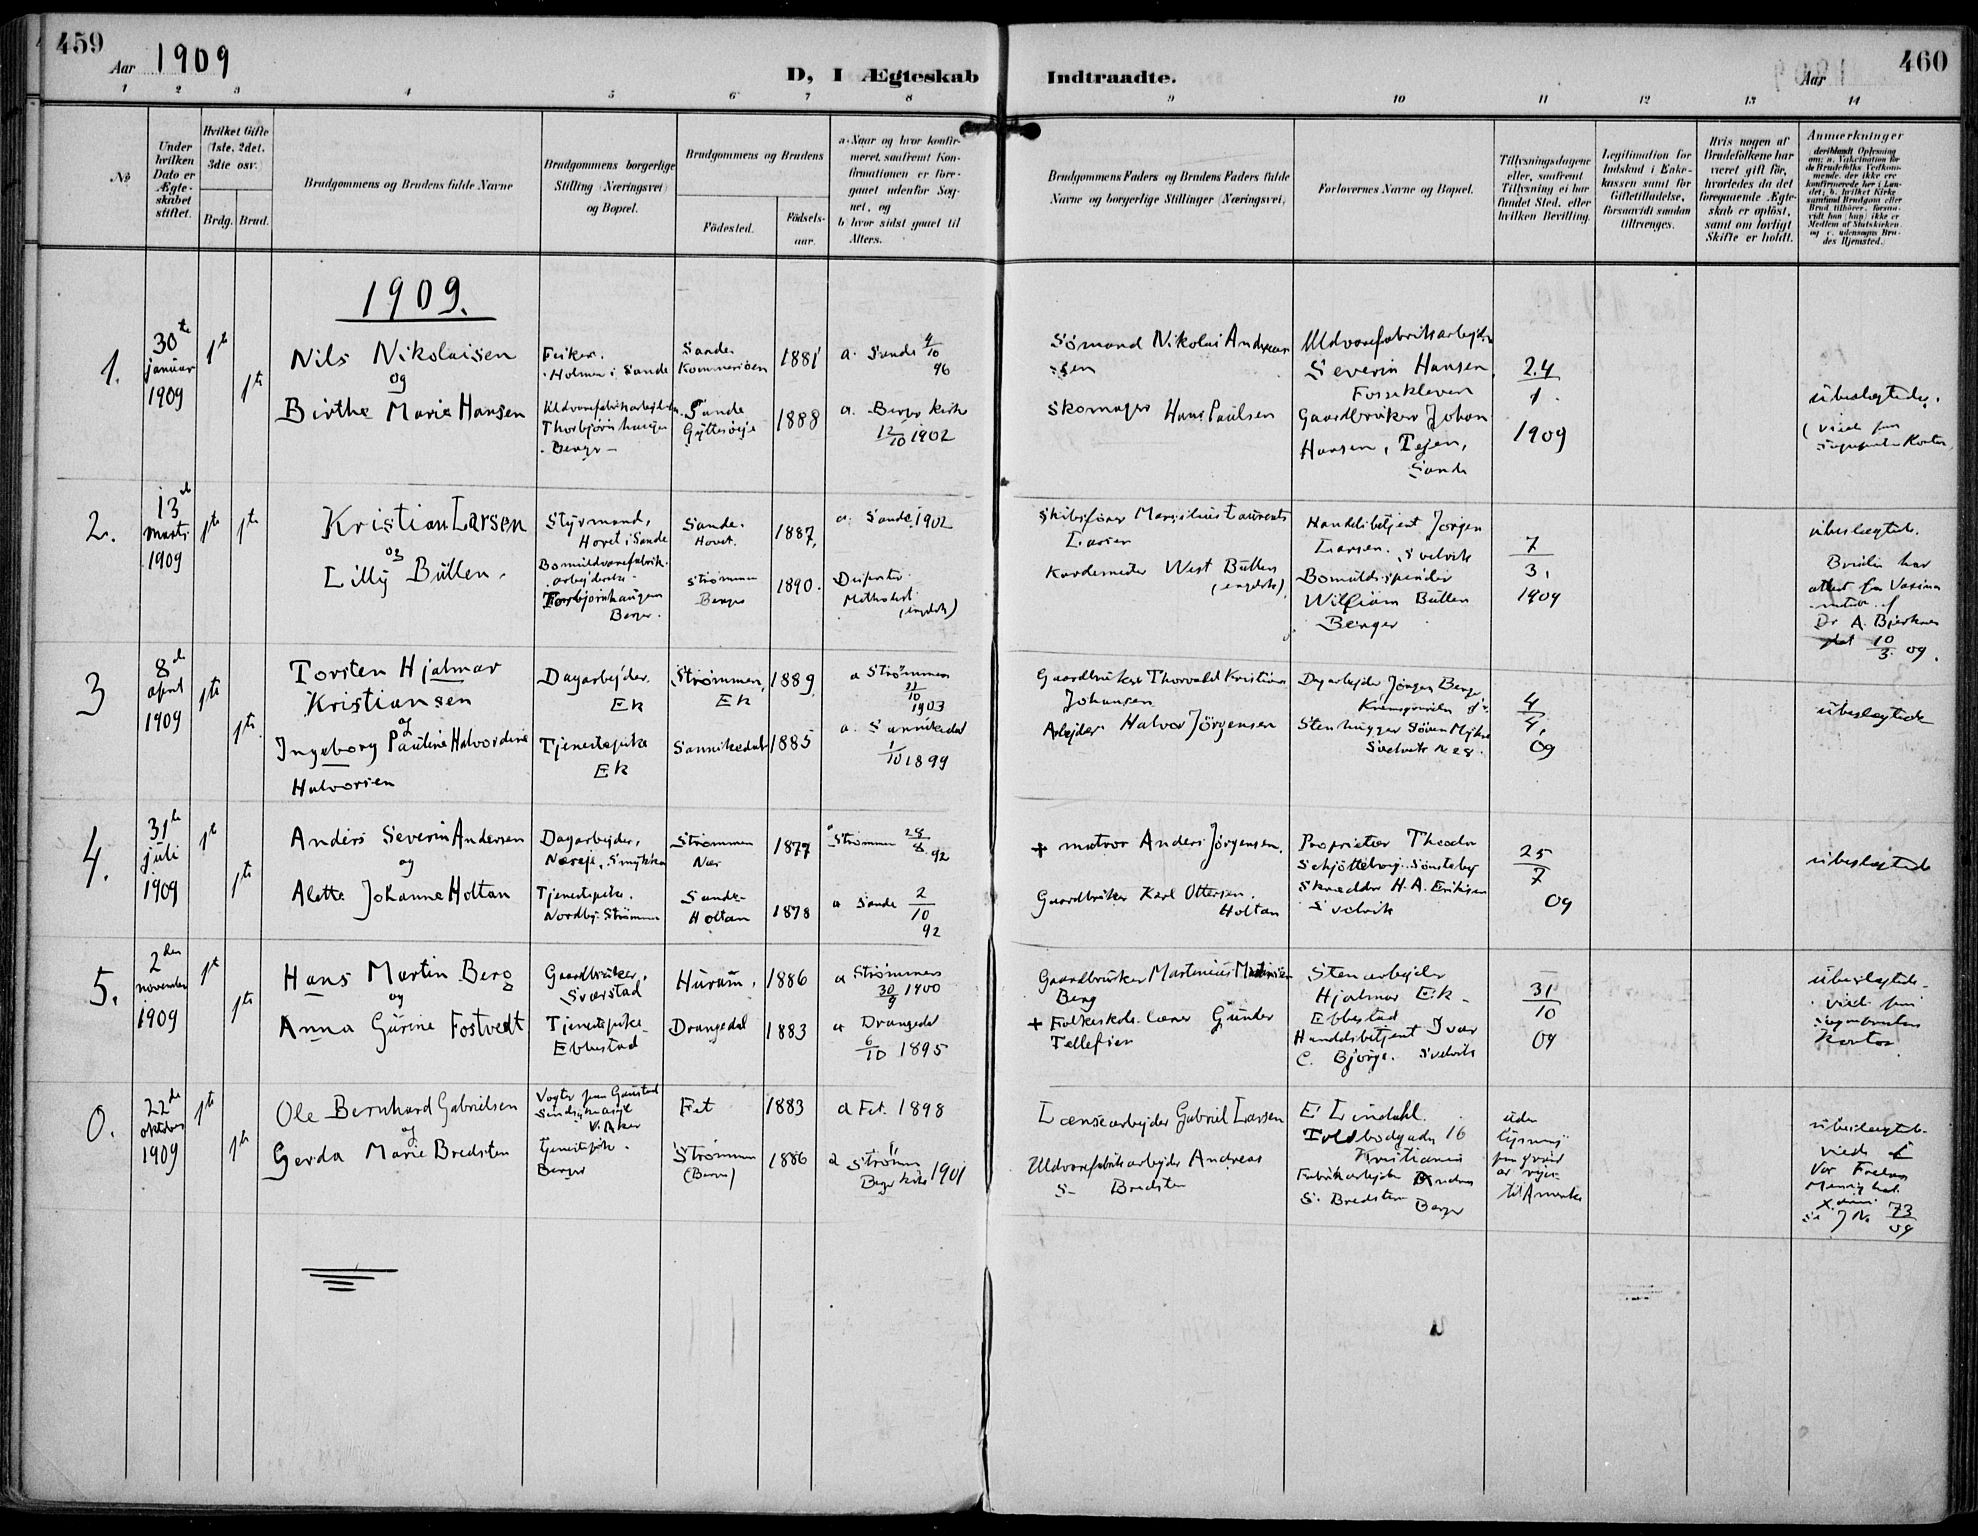 459
Aar 1909
D, I Ægteskab
Indtraadte.
Aar
460
1 2 3 4 5 6 7 8 9 10 11 12 13 14
No.
Under hvilken Dato er Ægteskabet stiftet.
Hvilket Gifte (1ste, 2det, 3die osv.)
Brdg. Brud.
Brudgommens og Brudens fulde Navne
Brudgommens borgerlige Stilling (Næringsvei) og Bopæl.
Brudgommens og Brudens
Fødested.
Fødselsaar.
a. Naar og hvor konfirmeret, saafremt Konfirmationen er foregaaet udenfor Sognet, og
b. hvor sidst gaaet til Alters.
Brudgommens Faders og Brudens Faders fulde Navne og borgerlige Stillinger (Næringsvei)
Forlovernes Navne og Bopæl.
Tillysningsdagene eller, saafremt Tillysning ei har fundet Sted, efter hvilken Bevilling.
Legitimation for Indskud i Enkekassen samt for Giftetilladelse, forsaavidt saadan tiltrænges.
Hvis nogen af Brudefolkene har været gift før, hvorledes da det foregaaende Ægteskab er opløst, samt om lovligt Skifte er holdt.
Anmerkninger (deriblandt Oplysning om: a. Vakcination for de Brudefolks Vedkommende, der ikke ere konfirmerede her i Landet; b. hvilket Kirkesamfund Brudgom eller Brud tilhører, forsaavidt han (hun) ikke er Medlem af Statskirken og c. udensogns Brudes Hjemsted.)
1909.
1.
30te januar 1909
1te
1te
Nils Nikolaisen
og
Birthe Marie Hansen
Fisker.
Holmen i Sande
Uldvarefabrikarbejder
Berger
Sande
1881
Sande
1888
a. Sande 4/10 96
a. Berger kirke
12/10 1902
Sømand Nikolai Andreassen
Skomager Hans Paulsen
Uldvarefabrikarbejder
Severin Hansen,
Fossekleven
Gaardbruker Johan
Hansen, Tejen,
Sande
24
1.
1909
ubeslegtede.
2.
13de marts 1909
1te
1te
Kristian Larsen
og
Lilly Bullen.
Styrmand,
Hovet i Sande
Bomuldvarefabrikarbejderske
Torbjörnhaugen
Berger.
Sande.
Hovet.
1887,
Strømmen
Berger
1890.
a. Sande 1902
(engelsk)
Skibsfører Marsilius Laurents
Larsen
Kardemester West Bullen
(engelsk)
Handelsbetjent Jørgen
Larsen. Svelvik
Bomuldspinder
William Bullen
Berger
7
3.
1909
ubeslegtede.
Bruden har
attest for Vaxina
Dr A. Bjerknes
dat 10/3 09.
3
8de april 1909
1te
1te
Torsten Hjalmar
Kristiansen
og
Ingeborg Pauline Halvordine
Halvorsen
Dagarbejder.
Ek
Tjenestepike
Ek
Strømmen,
Ek
1889
Sannikedal
1885
a Strømmen
11/10
1903
a. Sannikedal
1/10 1899
Gaardbruker Thorvald Kristian
Johansen
Arbejder Halvor Jörgensen
Dagarbejder Jörgen Berge
Stenhugger Søren Myhre
Svelvik
4
4.
09
ubeslegtede
4.
31te juli 1909
1te
1te
Anders Severin Andersen
og
Alette Johanne Holtan
Dagarbejder,
Tjenestepike.
Nordby. Strømmen
Strømmen
1877
Sande
Holtan
1878
a Strømmen 28/8 92
a Sande 2/10
92
+ matros Anders Jörgensen.
Gaardbruker Karl Ottersen.
Holtan
Proprietær Theodor
Skrædder H. A. Eriksen
Svelvik
25
7
09
ubeslegtede
5.
2den november 1909
1te
1te
Hans Martin Berg
og
Anna Gurine Fostvedt
Gaardbruker,
Sværstad
Tjenestepike
Ebbestad
Hurum.
1886
Drangedal
1883
a Strømmen
30/9 1900
a Drangedal
6/10 1895
Gaardbruker Martinius Martinsen
Berg
+ Folkeskolelærer Gunder
Tellefsen
Stenarbejder
Hjalmar Ek
Ebbestad
Handelsbetjent Ivar
C. Bjørge. Svelvik
31
10
09
ubeslegtede
kontor
0.
22de oktober 1909
1te
1te
Ole Bernhard Gabrielsen
og
Gerda Marie Bredsten
Vogter paa Gaustad
Sindssygeasyl
V. Aker
Tjenestepike.
Berger
Fet
1883
Strømmen
(Berger)
1886
a Fet. 1898
a Strømm
Berger kirke 1901
Lænsearbejder Gabriel Larsen
Uldvarefabrikarbejder Andreas
S. Bredsten
E. Lindahl.
Toldbodgaden 16
Kristiania
Fabrikarbejder Andreas
S. Bredsten Berger
uden
lysning
paa grund
av rejse
til Amerika
ubeslegtede
viede i
Vor Frelsers
Menighed
Kr.ania
Se J No 73/09